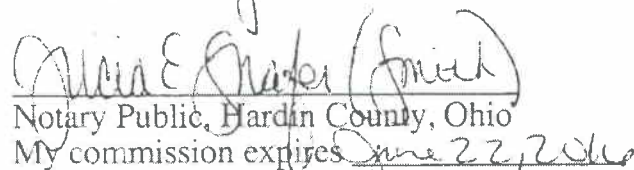 E (Smith)
Notary Public, Hardin County, Ohio
My commission expires June 22, 2016